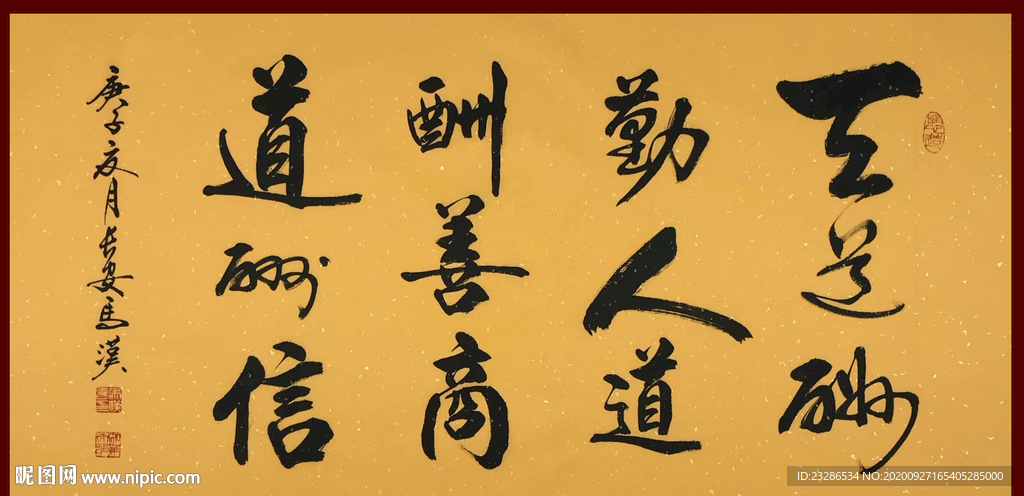 天道酬
勤人道
酬善商
道酬信
庚子夏月长安马汉
昵图网 www.nipic.com
ID:23286534 NO:20200927165405285000